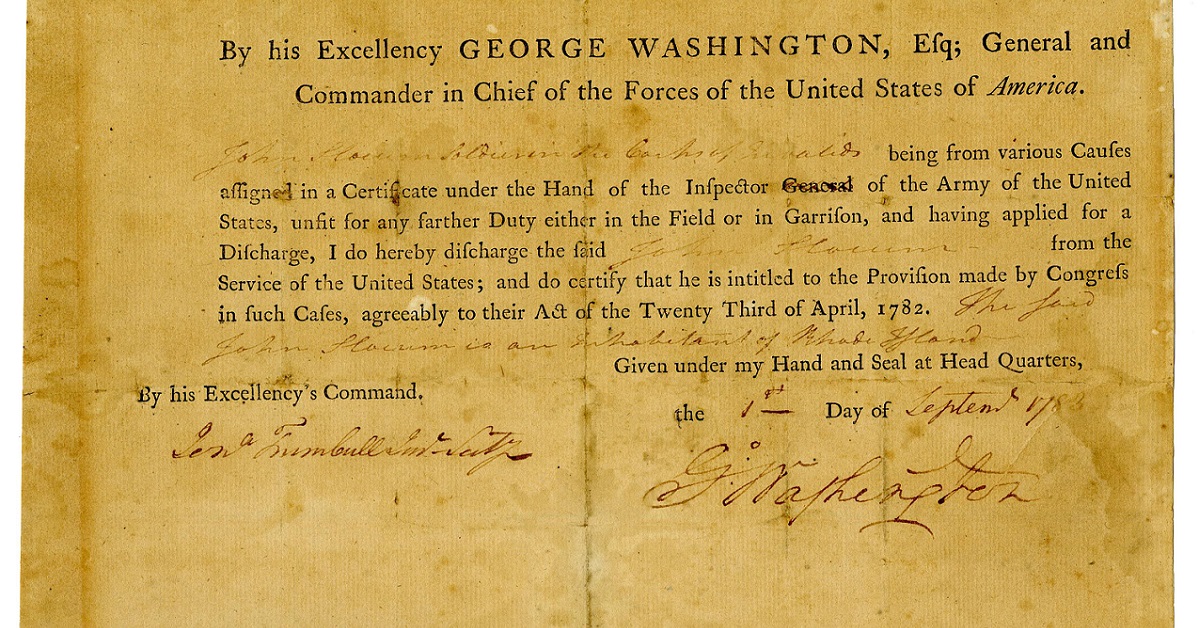 By his Excellency GEORGE WASHINGTON, Eſq; General and
Commander in Chief of the Forces of the United States of America.
John Slocum Soldier in the Corps of Invalids being from various Cauſes
aſſigned in a Certificate under the Hand of the Inſpector General of the Army of the United
States, unfit for any farther Duty either in the Field or in Garriſon, and having applied for a
Diſcharge, I do hereby diſcharge the ſaid John Slocum from the
Service of the United States; and do certify that he is intitled to the Proviſion made by Congreſs
in ſuch Caſes, agreeably to their Act of the Twenty Third of April, 1782. The said
John Slocum is an inhabitant of Rhode Iſland
Given under my Hand and Seal at Head Quarters,
By his Excellency's Command.
the 1st Day of Septemr
Jona Trumbull Junr Secty
G:Washington